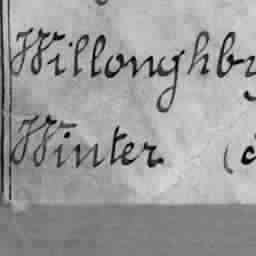 Willoughby
Winter (